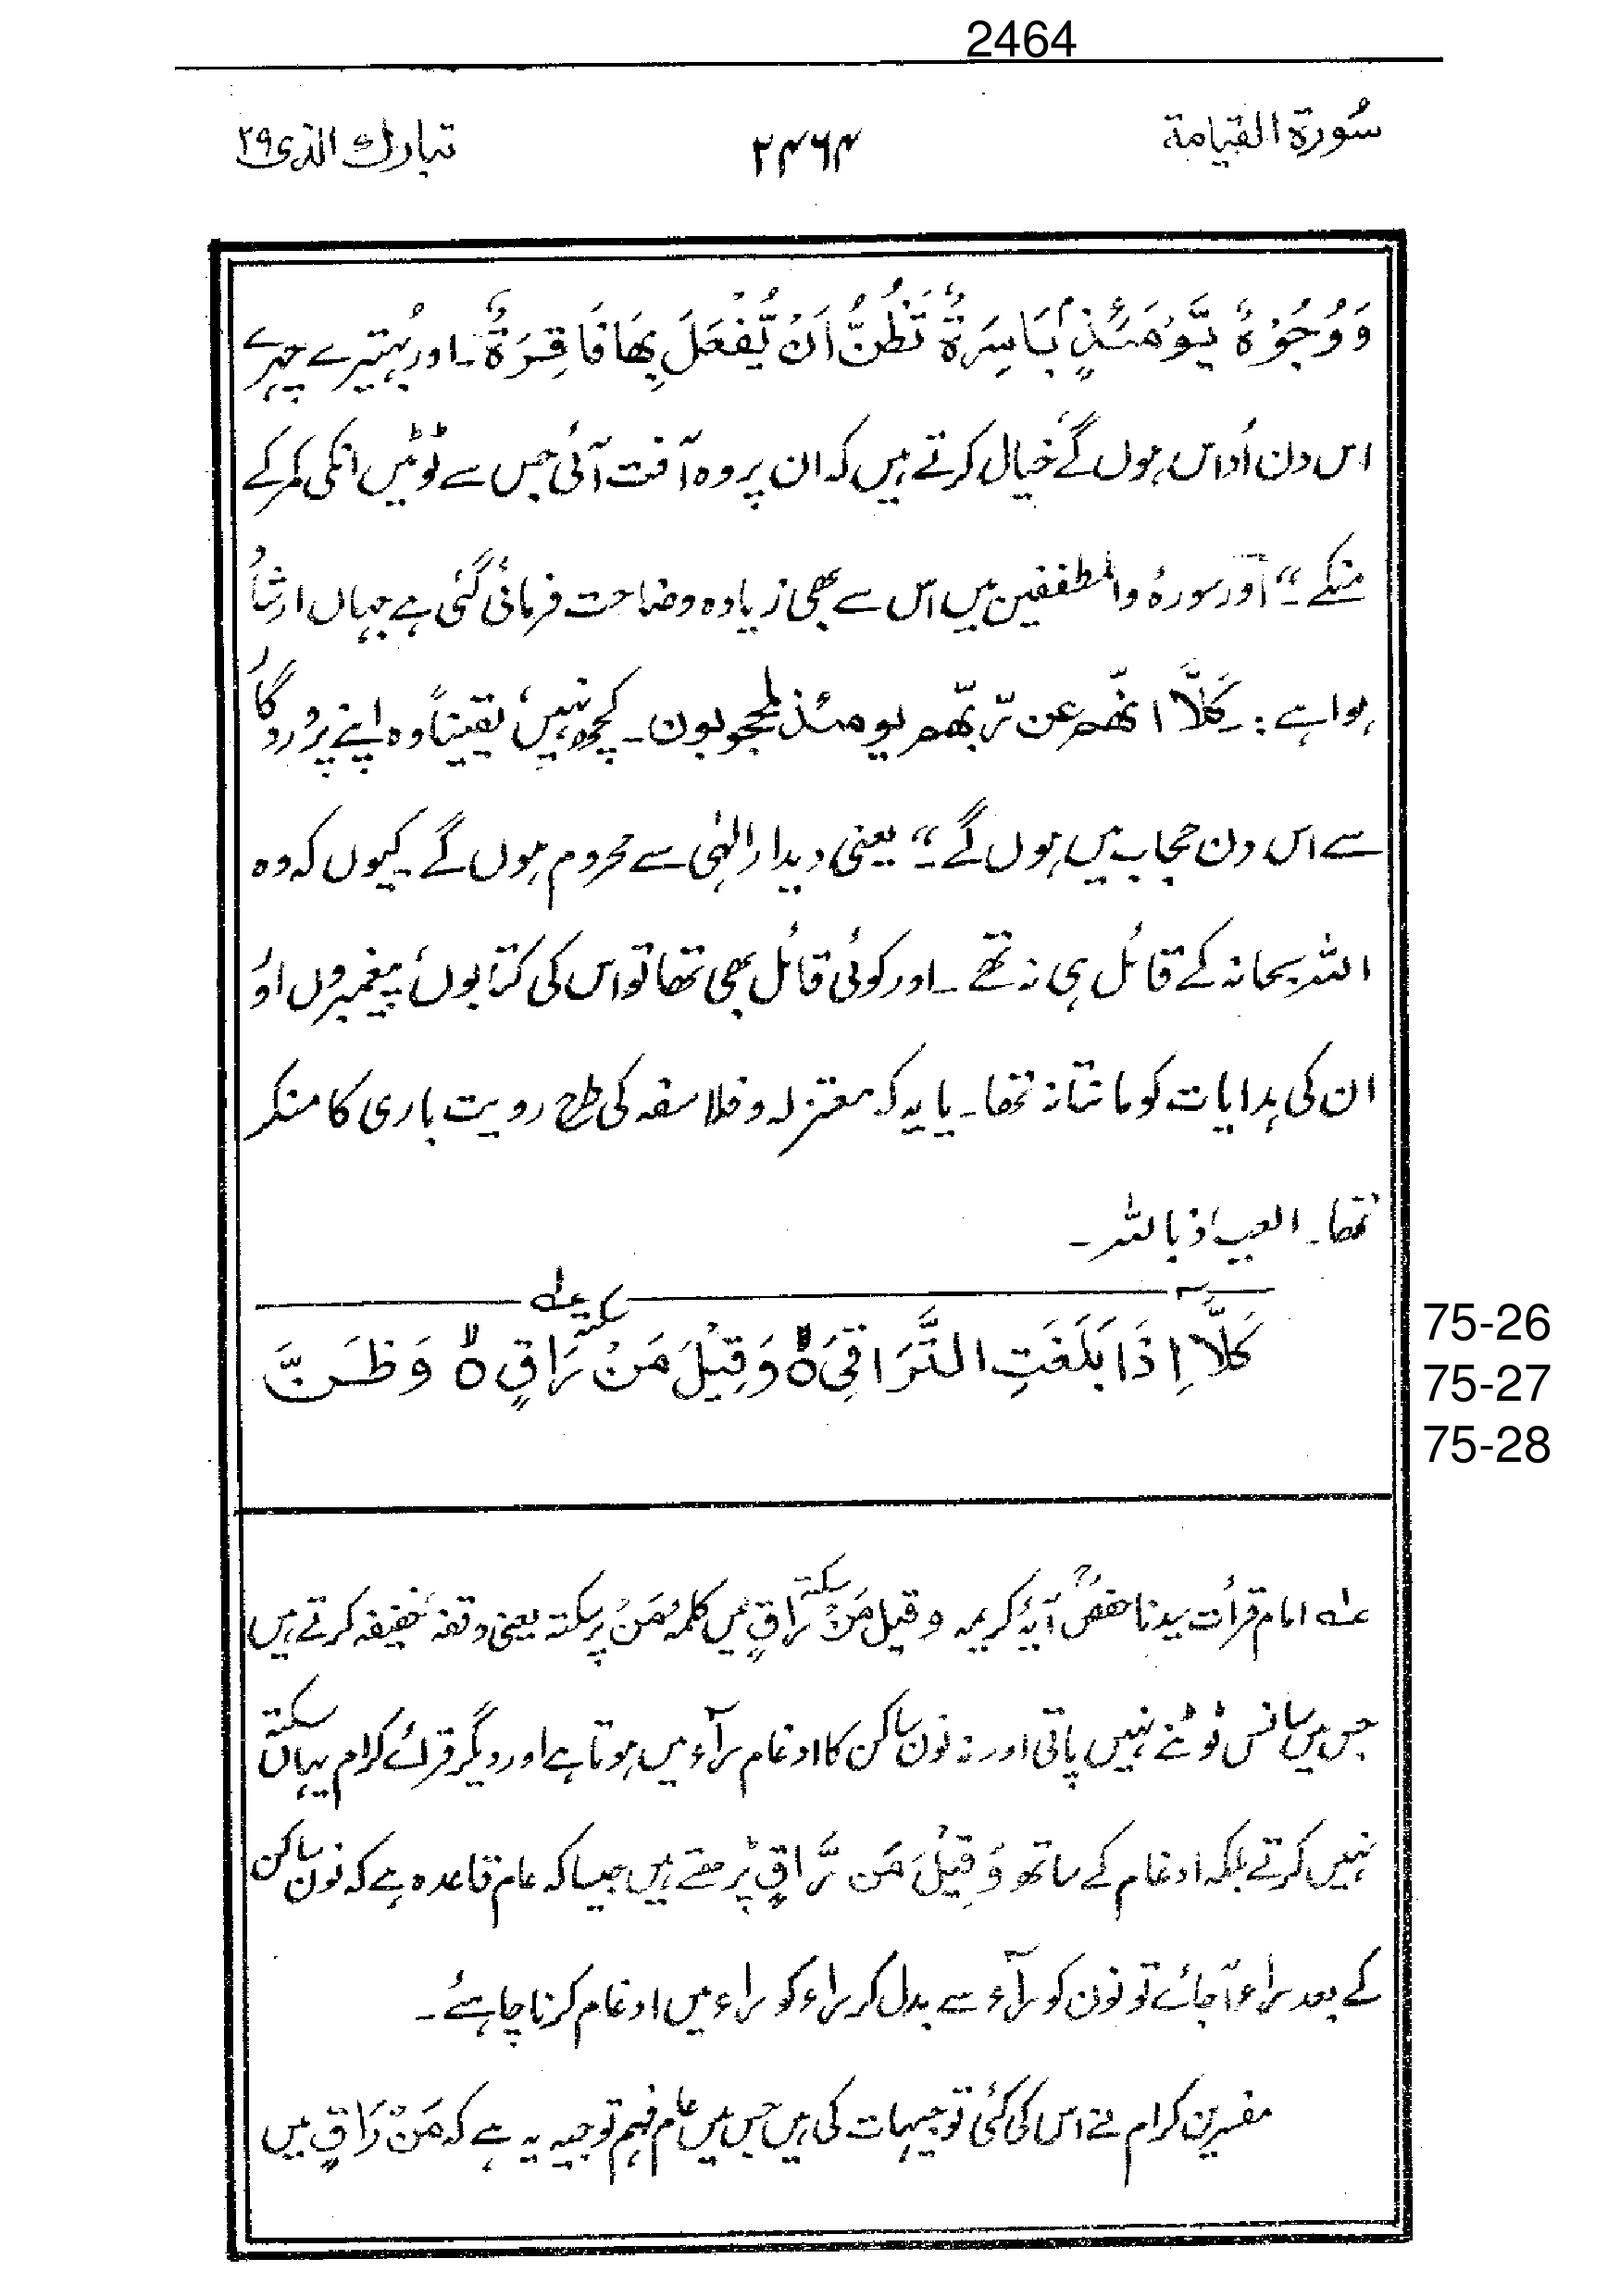 2464
سُورة القيامة ۲۴۶۴ تبارك الذی ۲۹
وَوُجُوْهٌ يَّوْمَئِذٍۭ بَاسِرَةٌ تَظُنُّ اَنْ يُّفْعَلَ بِهَا فَاقِرَةٌ ۔ اور بہتیرے چہرے
اس دن اُداس ہوں گے خیال کرتے ہیں کہ ان پر وہ آفت آئی جس سے ٹوٹیں انکی کمر کے
منکے ۔“ اور سورۂ والمطففین میں اس سے بھی زیادہ وضاحت فرمائی گئی ہے جہاں ارشاد
ہوا ہے :۔ كَلَّا انّهم عن رّبّهم يومئذ لمحجوبون ۔ کچھ نہیں، یقیناً وہ اپنے پروردگار
سے اس دن حجاب میں ہوں گے ۔“ یعنی دیدارِ الٰہی سے محروم ہوں گے ۔ کیوں کہ وہ
اللہ سبحانہ کے قائل ہی نہ تھے ۔ اور کوئی قائل بھی تھا تو اس کی کتابوں، پیغمبروں اور
ان کی ہدایات کو مانتا نہ تھا ۔ یا یہ کہ معتزلہ و فلاسفہ کی طرح رویت باری کا منکر
تھا ۔ العیاذ باللہ ۔
كَلَّآ اِذَا بَلَغَتِ التَّرَاقِيَ ۙ وَقِيْلَ مَنْ سكتة رَاقٍ ۙ وَظَنَّ
75-26
75-27
75-28
عـلـه امام قرأت سیدنا حفصؒ آیۂ کریمہ وقیل مَنْ سكتة رَاقٍ میں کلمۂ مَنْ پر سکتہ یعنی وقفۂ خفیفہ کرتے ہیں
جس میں سانس ٹوٹنے نہیں پاتی اور نہ نون ساکن کا ادغام رآء میں ہوتا ہے اور دیگر قرائے کرام یہاں سکتہ
نہیں کرتے بلکہ ادغام کے ساتھ وَقِيْلَ مَن رَّاقٍ پڑھتے ہیں جیسا کہ عام قاعدہ ہے کہ نون ساکن
کے بعد راء آجائے تو نون کو رآء سے بدل کر راء کو راء میں ادغام کرنا چاہئے ۔
مفسرین کرام نے اس کی کئی توجیہات کی ہیں جس میں عام فہم توجیہ یہ ہے کہ مَنْ رَاقٍ میں